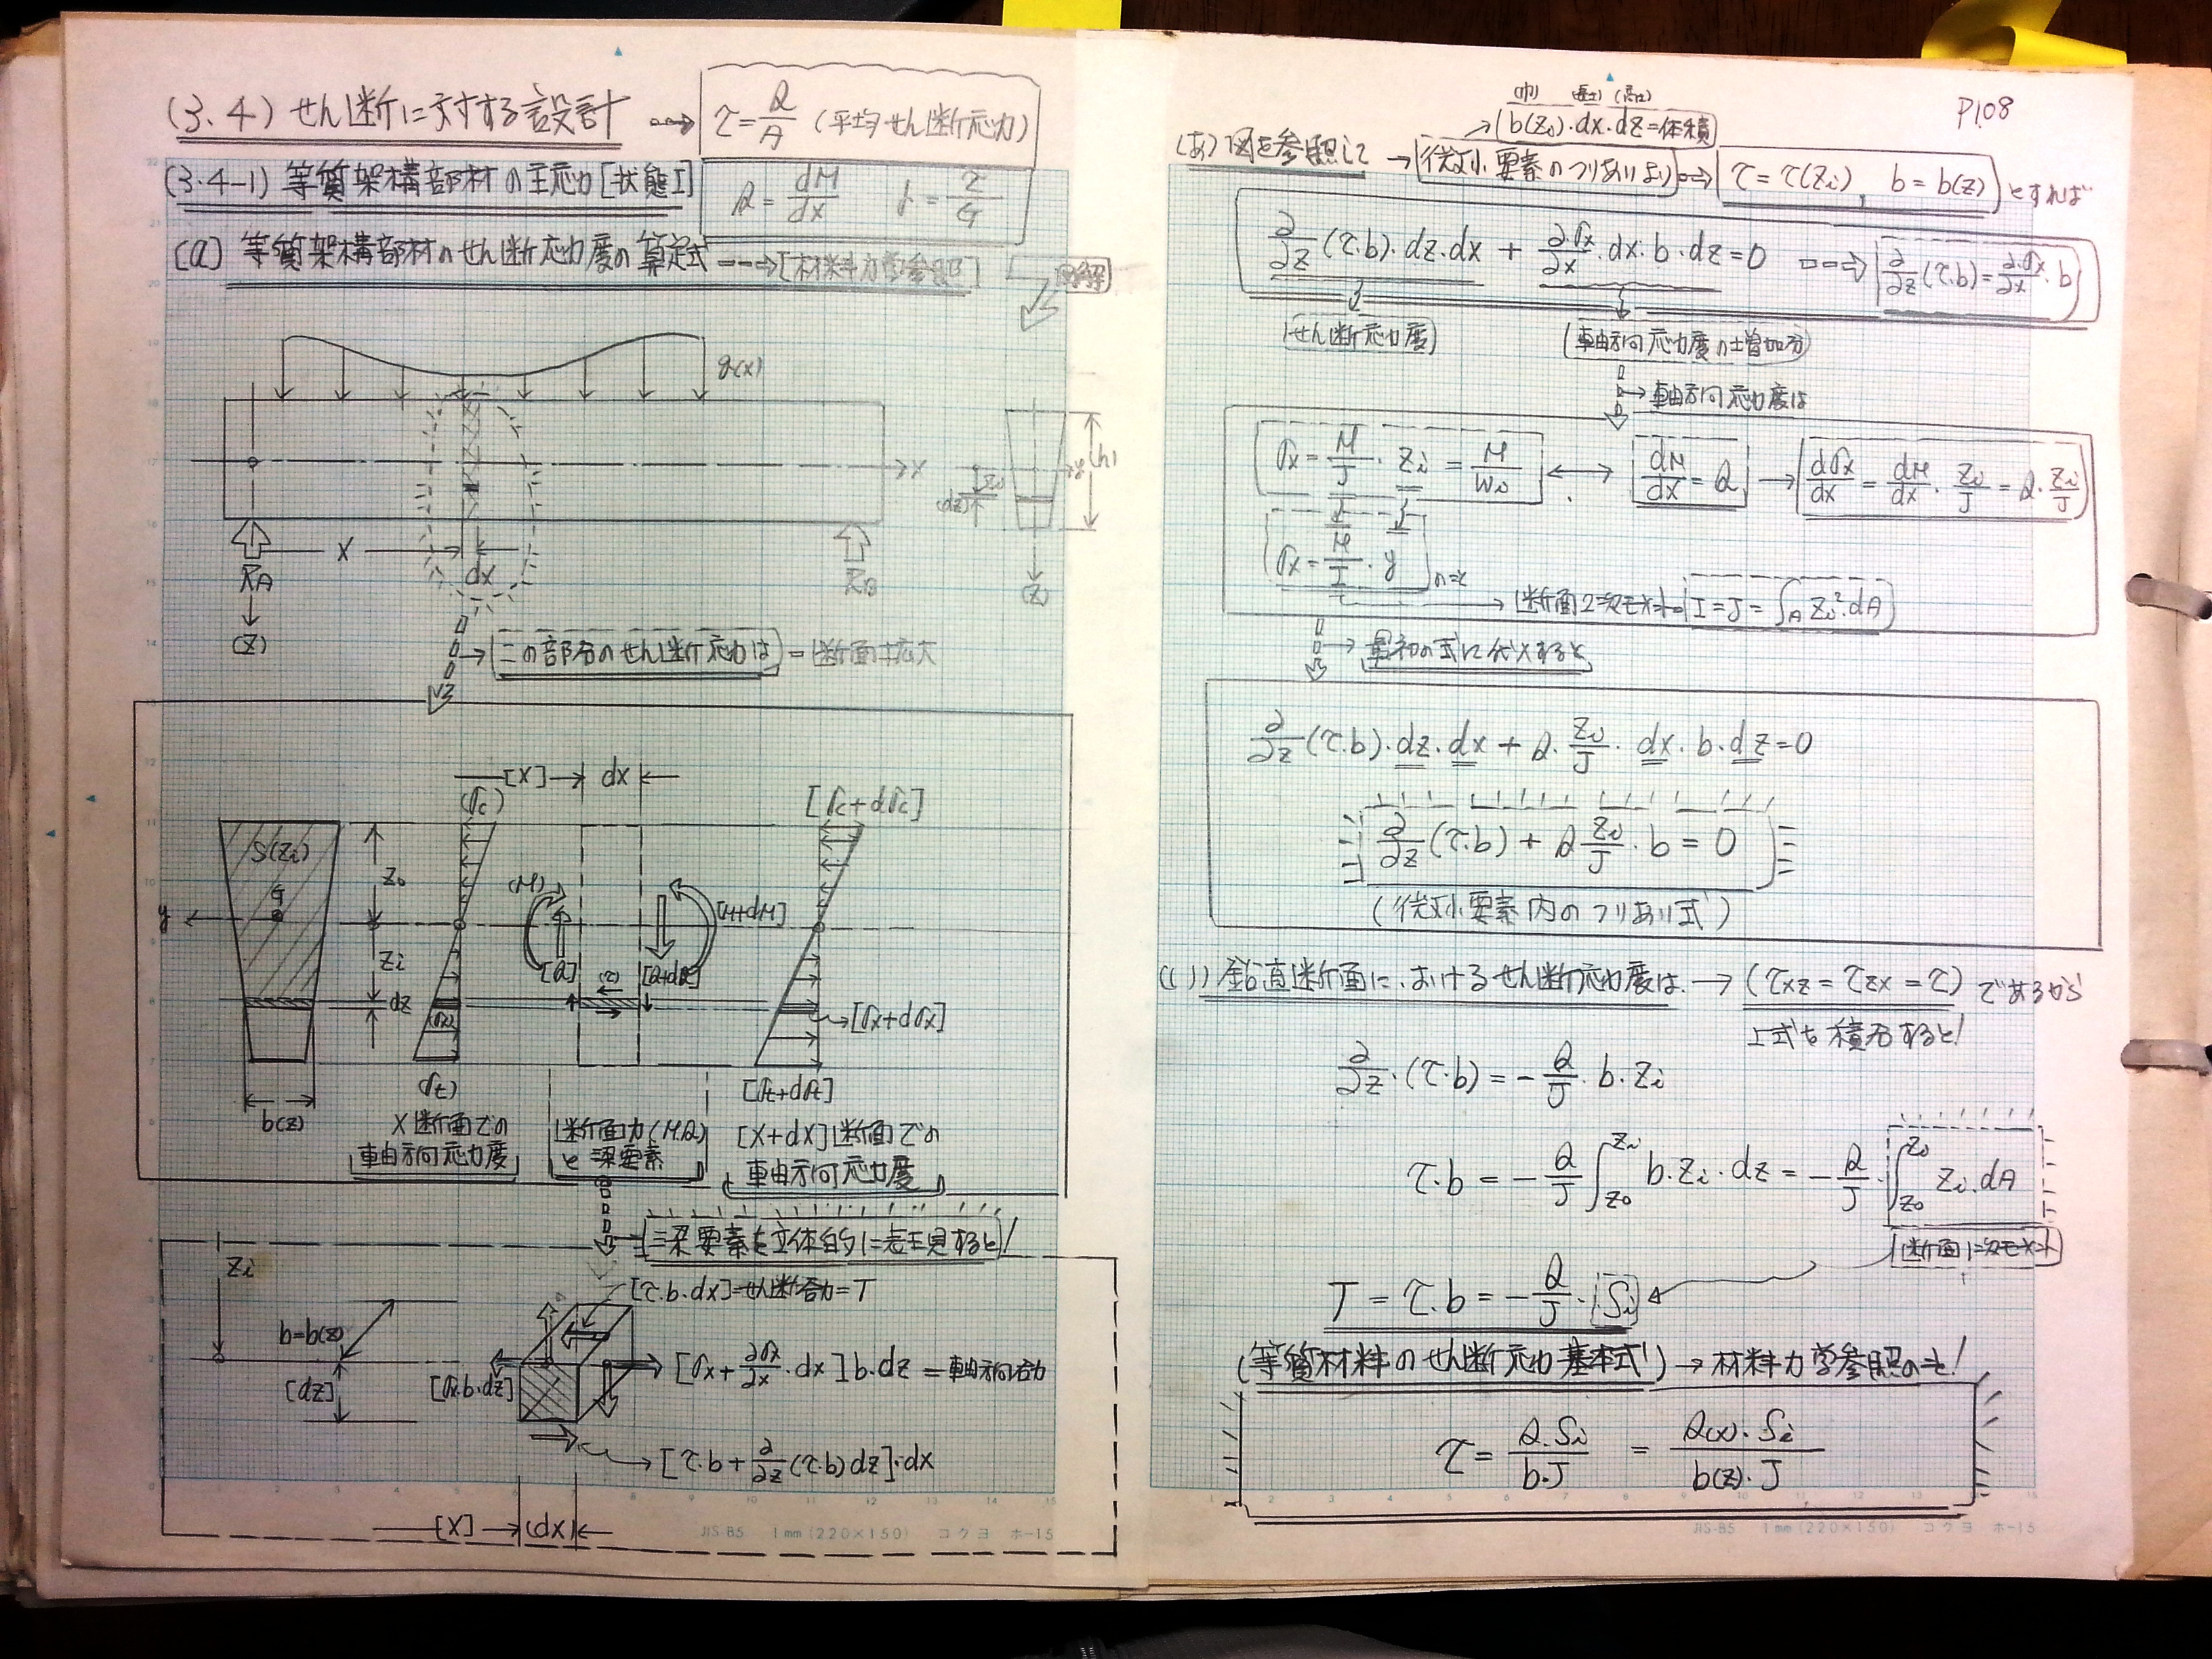 (3.4) せん断に対する設計
τ = Q/A (平均せん断応力)
(3.4-1) 等質架構部材の主応力[状態I]
Q = dM/dx γ = τ/G
(a) 等質架構部材のせん断応力度の算定式 → [材料力学参照]
図解
q(x)
x
y
(h)
Zi
(dz)
x
dx
RA
RB
(Z)
(Z)
この部分のせん断応力は = 断面拡大
[X] → dx
(σc)
[σc+dσc]
S(Zi)
Z0
G
y
(M)
[M+dM]
Zi
[Q]
(τ)
[Q+dQ]
dz
(σx)
[σx+dσx]
(σt)
[σt+dσt]
b(z)
X断面での
軸方向応力度
断面力(M.Q)
と梁要素
[X+dX]断面での
軸方向応力度
梁要素を立体的に表現すると!
Zi
[τ.b.dx]=せん断合力=T
b=b(z)
[dz]
[σx.b.dz]
[σx + ∂σx/∂x · dx] b.dz = 軸方向合力
[τ.b + ∂/∂z (τ.b) dz]·dx
[X] → (dx)
JIS-B5 1mm(220×150) コクヨ ホ-15
P108
(巾) (長さ) (高さ)
b(Zi)·dx·dz=体積
(あ) 図を参照して → 微小要素のつりあいより → τ = τ(Zi), b = b(z) とすれば
∂/∂z (τ.b).dz.dx + ∂σx/∂x .dx.b.dz = 0 → ∂/∂z (τ.b) = ∂σx/∂x · b
せん断応力度
軸方向応力度の増加分
→ 軸方向応力度は
σx = M/J · Zi = M/Wi ↔ dM/dx = Q → dσx/dx = dM/dx · Zi/J = Q · Zi/J
σx = M/I · y
→ 断面2次モーメント I = J = ∫A Zi².dA
→ 最初の式に代入すると
∂/∂z (τ.b).dz.dx + Q. Zi/J . dx.b.dz = 0
∂/∂z (τ.b) + Q Zi/J · b = 0
(微小要素内のつりあい式)
(い) 鉛直断面におけるせん断応力度は → (τxz = τzx = τ) であるから
上式を積分すると!
∂/∂z ·(τ.b) = - Q/J · b.Zi
τ.b = - Q/J ∫Z0 Zi b.Zi.dz = - Q/J · ∫Z0 Zi Zi.dA
断面1次モーメント
T = τ.b = - Q/J · Si
(等質材料のせん断応力基本式) → 材料力学参照のこと!
τ = Q.Si / b.J = Q(x).Si / b(z).J
JIS-B5 1mm(220×150) コクヨ ホ-15